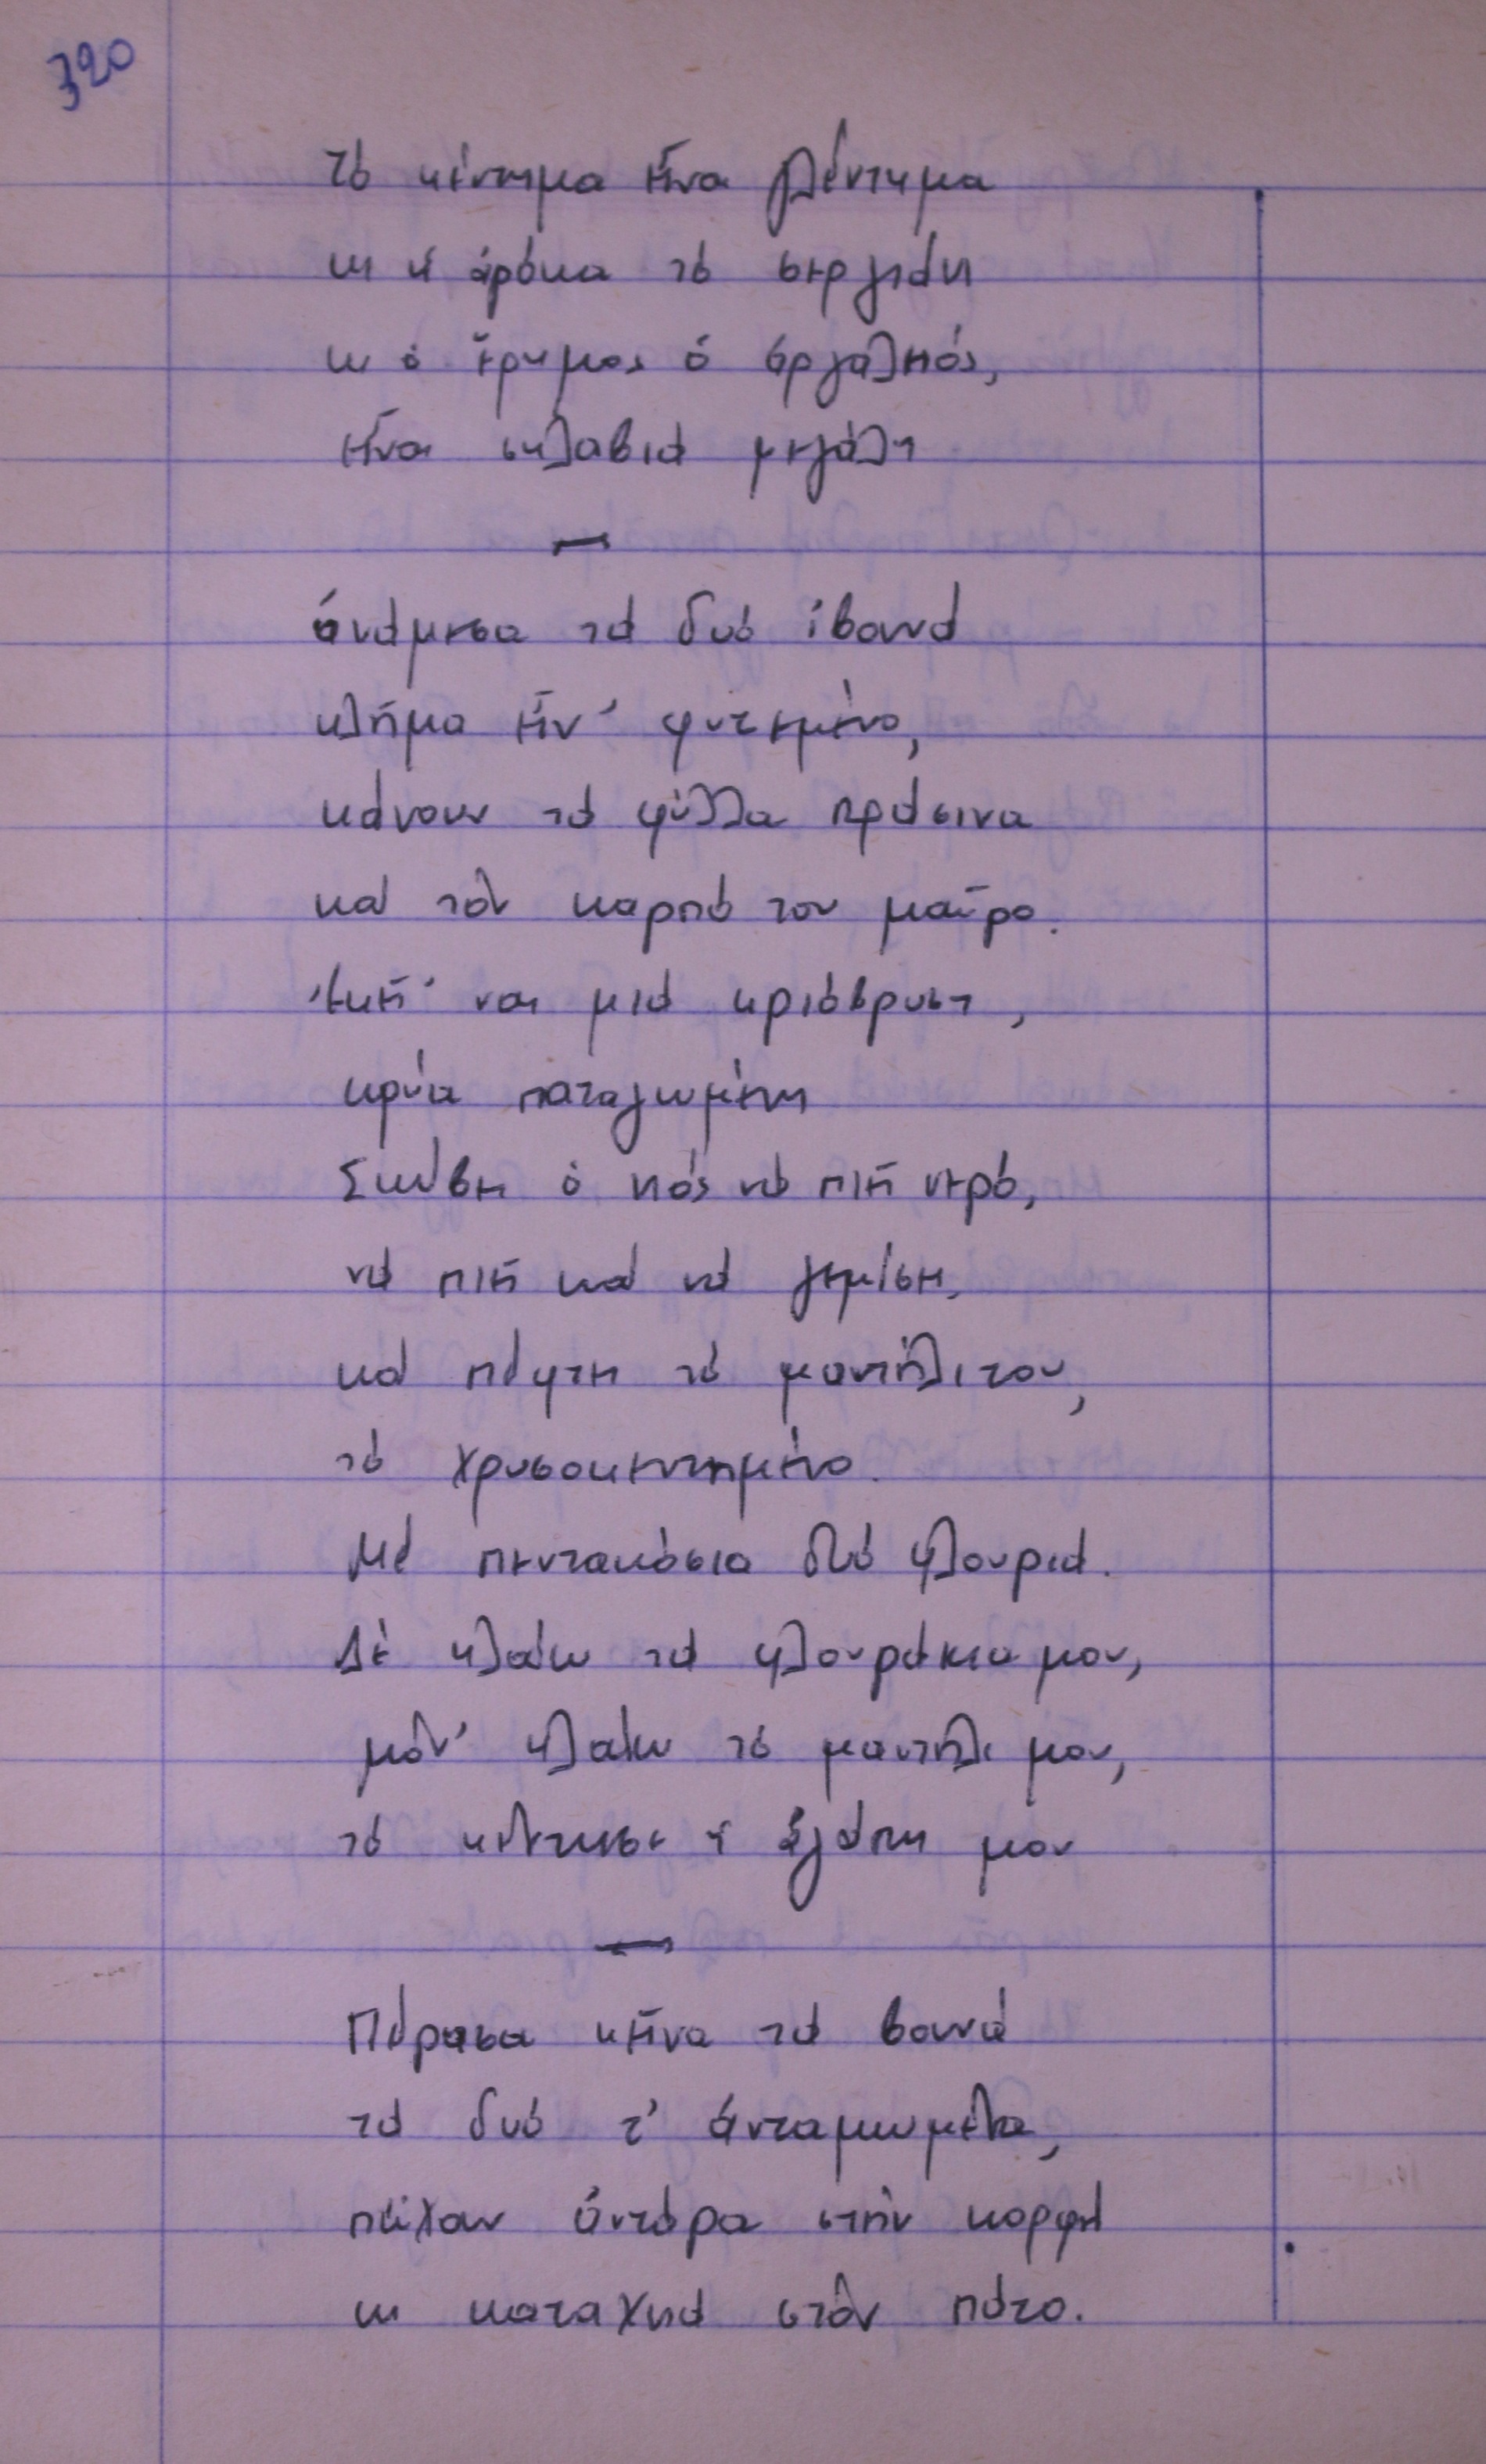 320
τό κέντημα εἶναι γλέντημα
κι ἡ ρόκα τό σεργιάνι
κι ὁ ἔρημος ὁ ἀργαλειός,
εἶναι σκλαβιά μεγάλη
ἀνάμεσα τά δυό ἰβουνά
κλῆμα εἶν' φυτεμένο,
κάνουν τά φύλλα πράσινα
καί τόν καρπό του μαῦρο.
ἐκεῖ 'ναι μιά κρυόβρυση,
κρύα παταγωμένη
Σκύβει ὁ νιός νά πιῆ νερό,
νά πιῆ καί νά γεμίση,
καί πέφτει τό μαντήλι του,
τό χρυσοκεντημένο.
Μέ πεντακόσια δυό φλουριά.
Δέ κλαίω τά φλουράκια μου,
μόν' κλαίω τό μαντήλι μου,
τό κέντησε ἡ ἀγάπη μου
Πέρασα κεῖνα τά βουνά
τά δυό τ' ἀνταμωμένα,
πεἴχαν ἀντάρα στήν κορφή
κι καταχνιά στόν πάτο.